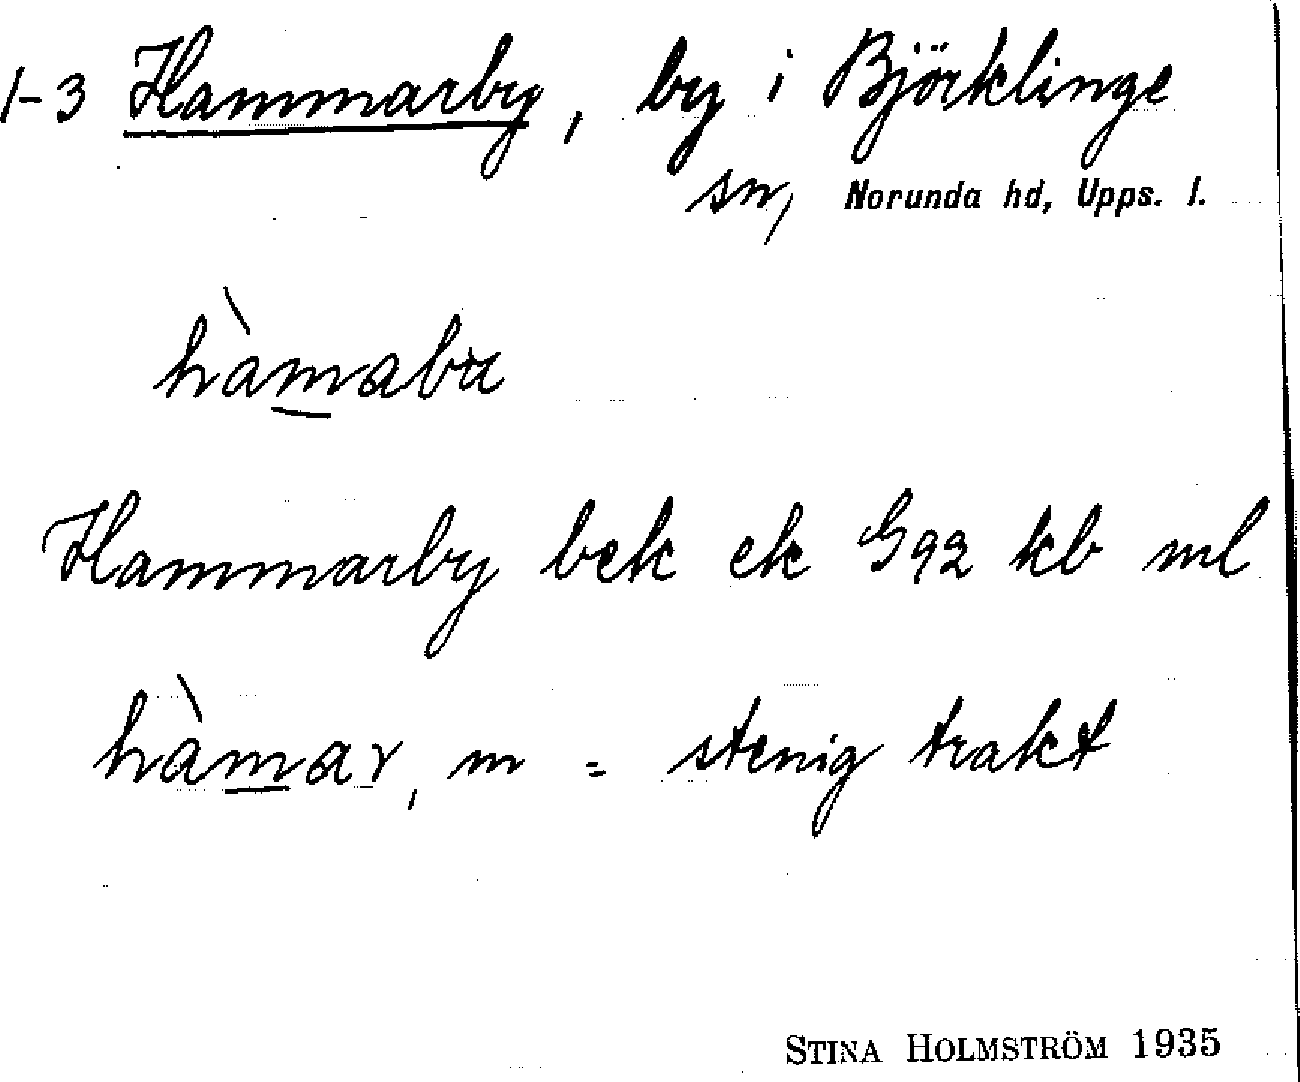 1-3 Hammarby, by i Björklinge
sn, Norunda hd, Upps. l.
hàmabʉ
Hammarby bek ek G92 kb ml
hàmar, m = stenig trakt
STINA HOLMSTRÖM 1935